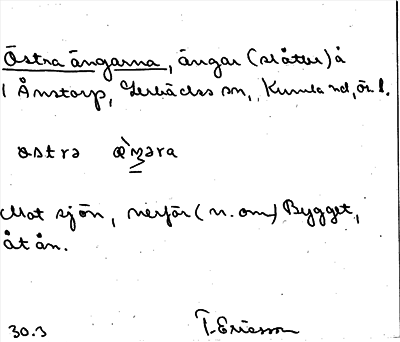 Östra ängarna, ängar (slåtter) å
1 Ånstorp, Lerbäcks sn, Kumla hd, Ör. l.
østrə
Mot sjön, nerför (n. om) Bygget,
åt ån.
30.3 T. Ericsson